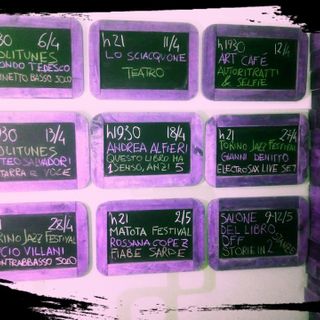 30 6/4
OLITUNES
ONDO TEDESCO
INETTO BASSO SOLO
h21 11/4
LO SCIACQUONE
TEATRO
h1930 12/4
ART CAFÉ
AUTORITRATTI
& SELFIE
30 13/4
OLITUNES
TEO SALVADORI
TARRA E VOCE
h1930 18/4
ANDREA ALFIERI
QUESTO LIBRO HA
1 SENSO, ANZI 5
h21 27/4
TORINO JAZZ FESTIVAL
GIANNI DENITTO
ELECTRO SAX LIVE SET
1 28/4
RINO JAZZ FESTIVAL
CIO VILLANI
ONTRABBASSO SOLO
h21 2/5
MATOTA FESTIVAL
ROSSANA COPEZ
FIABE SARDE
SALONE 9-12/5
DEL LIBRO
OFF
STORIE IN 2